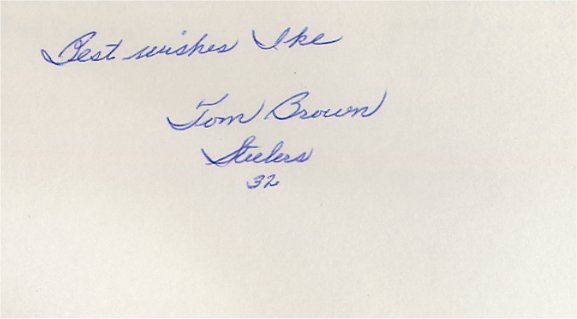 Best wishes Ike
Tom Brown
Steelers
32